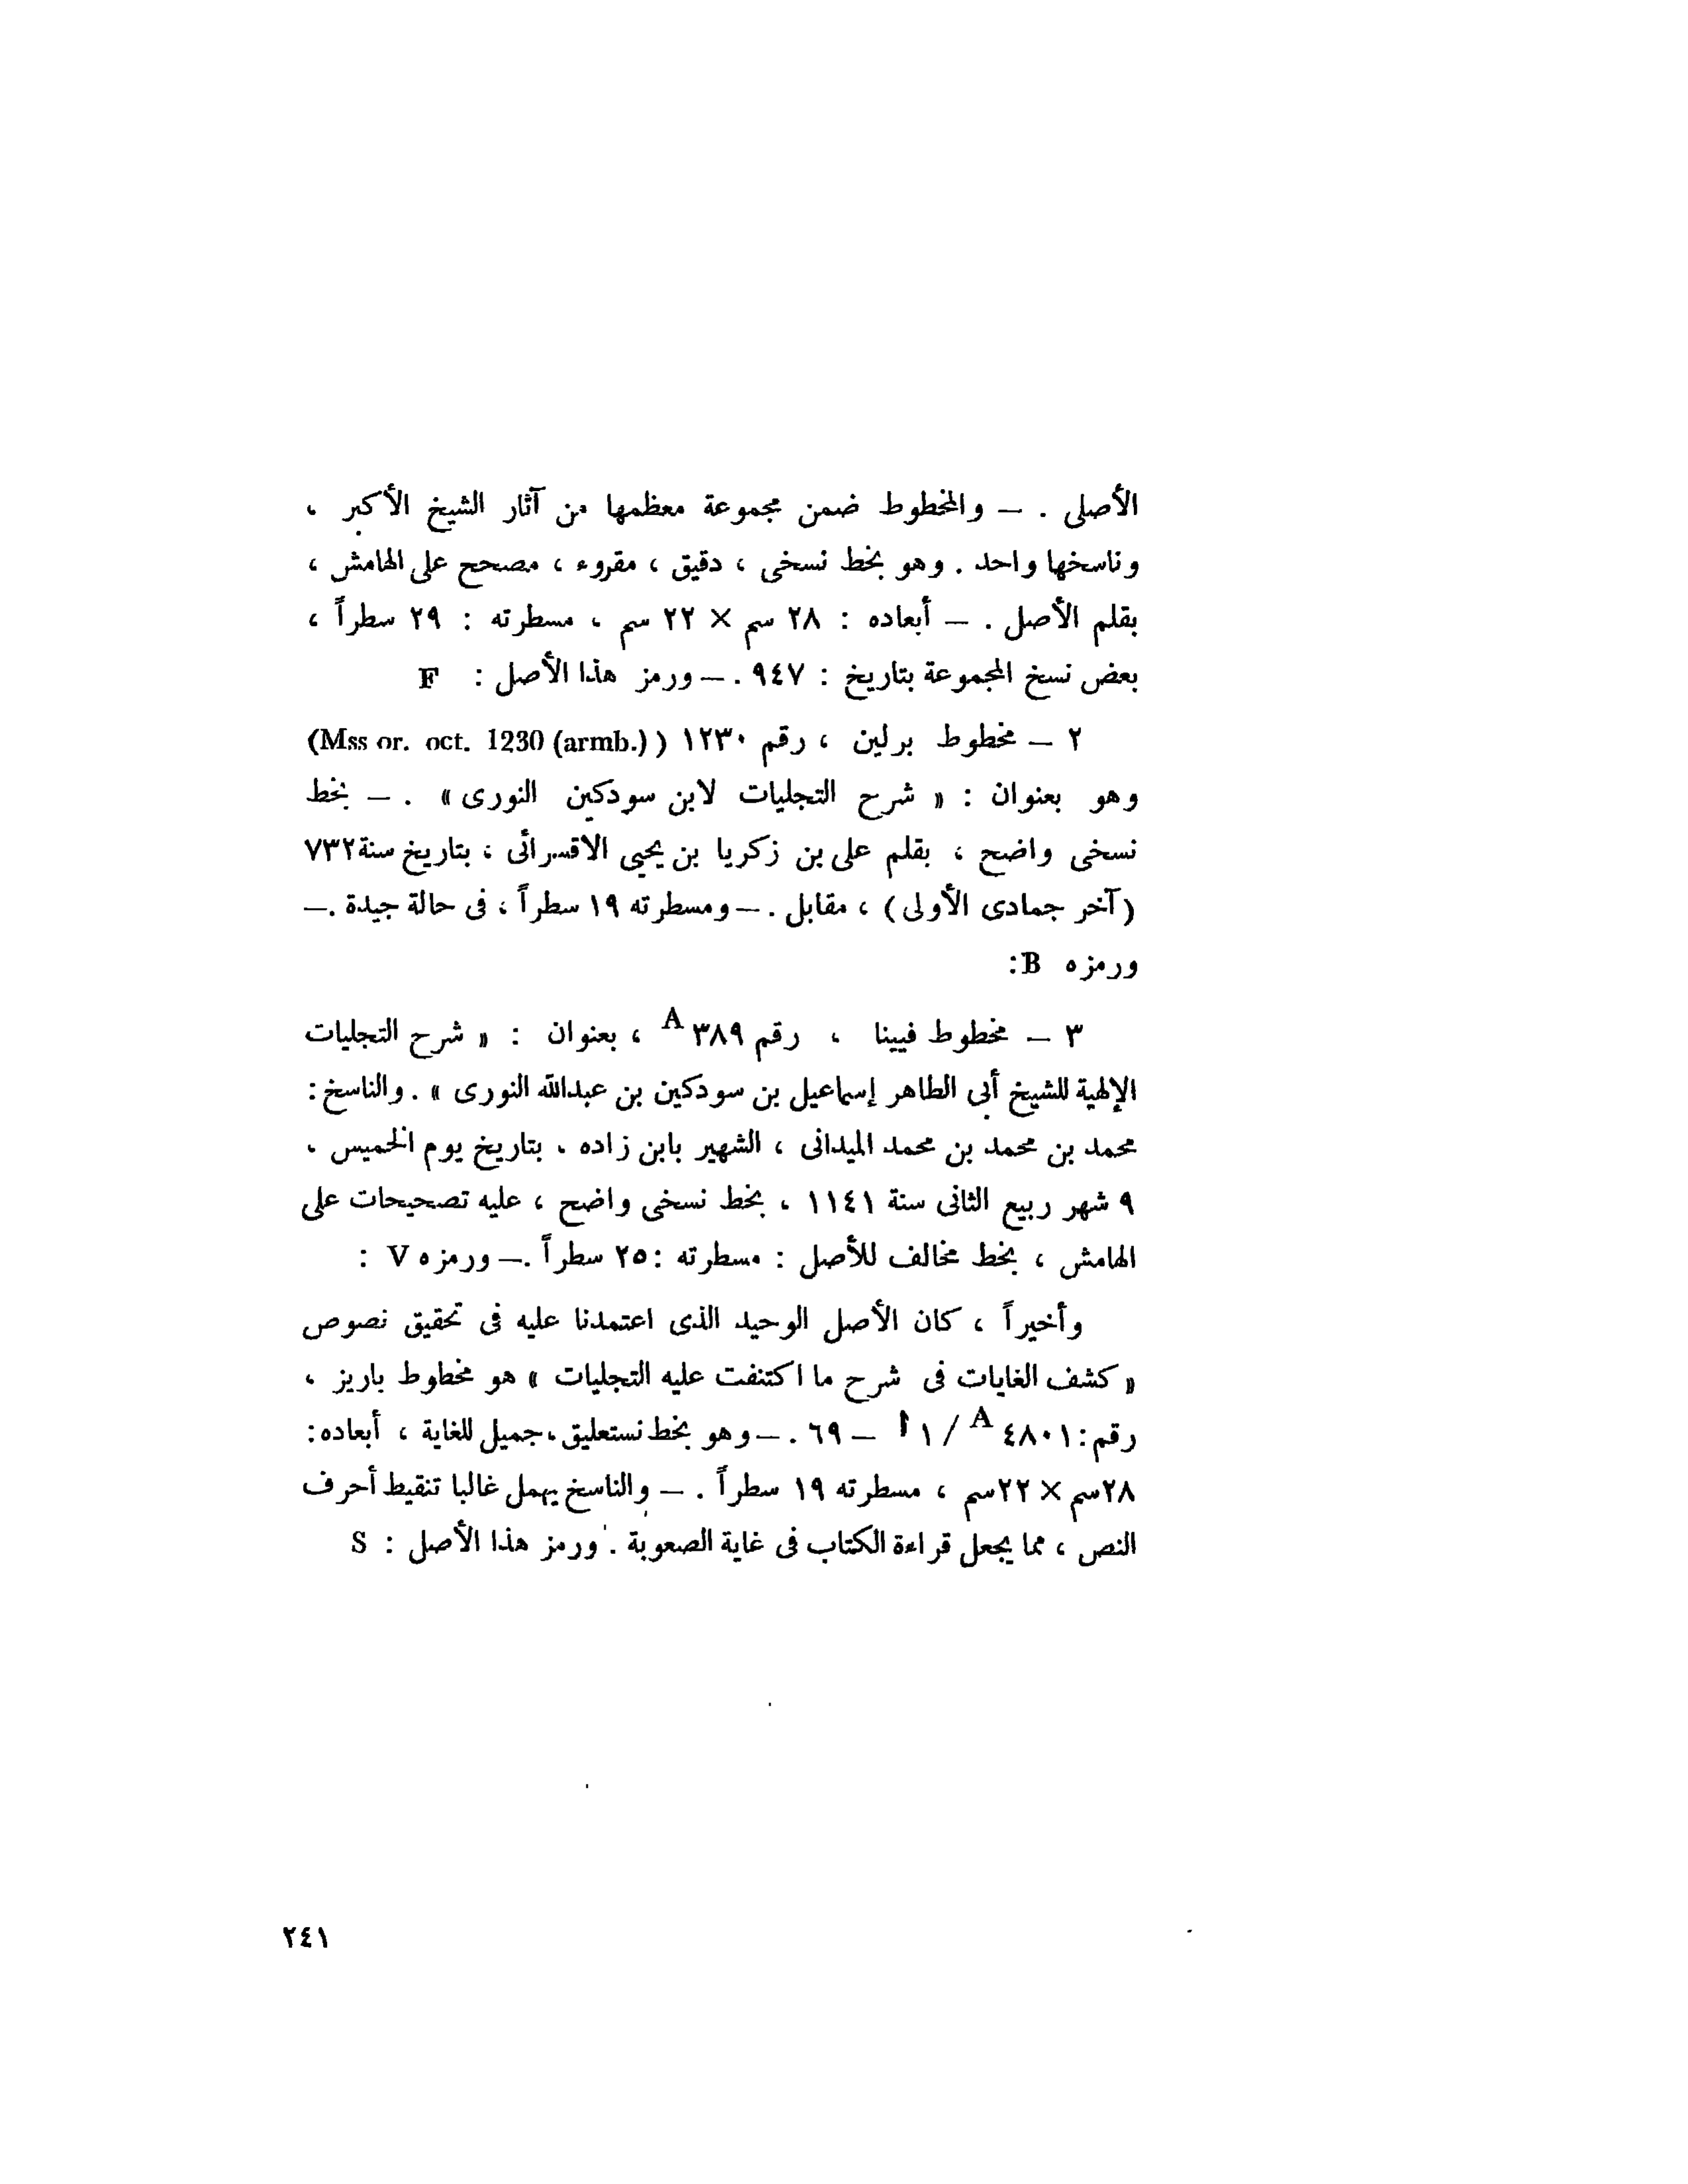 الأصلى . – والمخطوط ضمن مجموعة معظمها من آثار الشيخ الأكبر ،
وناسخها واحد . وهو بخط نسخى ، دقيق ، مقروء ، مصحح على الهامش ،
بقلم الأصل . – أبعاده : ٢٨ سم × ٢٢ سم ، مسطرته : ٢٩ سطراً ،
بعض نسخ المجموعة بتاريخ : ٩٤٧ . – ورمز هذا الأصل : F
٢ – مخطوط برلين ، رقم ١٢٣٠ ( (Mss or. oct. 1230 (armb.)
وهو بعنوان : « شرح التجليات لابن سودكين النورى » . – بخط
نسخى واضح ، بقلم على بن زكريا بن يحيى الاقسرائى ، بتاريخ سنة ٧٣٢
(آخر جمادى الأولى) ، مقابل . – ومسطرته ١٩ سطراً ، فى حالة جيدة .–
ورمزه B:
٣ – مخطوط فيينا ، رقم ٣٨٩ A ، بعنوان : « شرح التجليات
الإلهية للشيخ أبى الطاهر إسماعيل بن سودكين بن عبدالله النورى » . والناسخ :
محمد بن محمد بن محمد الميدانى ، الشهير بابن زاده ، بتاريخ يوم الخميس ،
٩ شهر ربيع الثانى سنة ١١٤١ ، بخط نسخى واضح ، عليه تصحيحات على
الهامش ، بخط مخالف للأصل : مسطرته : ٢٥ سطراً .– ورمزه V :
وأخيراً ، كان الأصل الوحيد الذى اعتمدنا عليه فى تحقيق نصوص
« كشف الغايات فى شرح ما اكتنفت عليه التجليات » هو مخطوط باريز ،
رقم : ٤٨٠١ A / ١ أ – ٦٩ . – وهو بخط نستعليق ، جميل للغاية ، أبعاده :
٢٨سم × ٢٢سم ، مسطرته ١٩ سطراً . – والناسخ يهمل غالبا تنقيط أحرف
النص ، مما يجعل قراءة الكتاب فى غاية الصعوبة . ورمز هذا الأصل : S
٢٤١